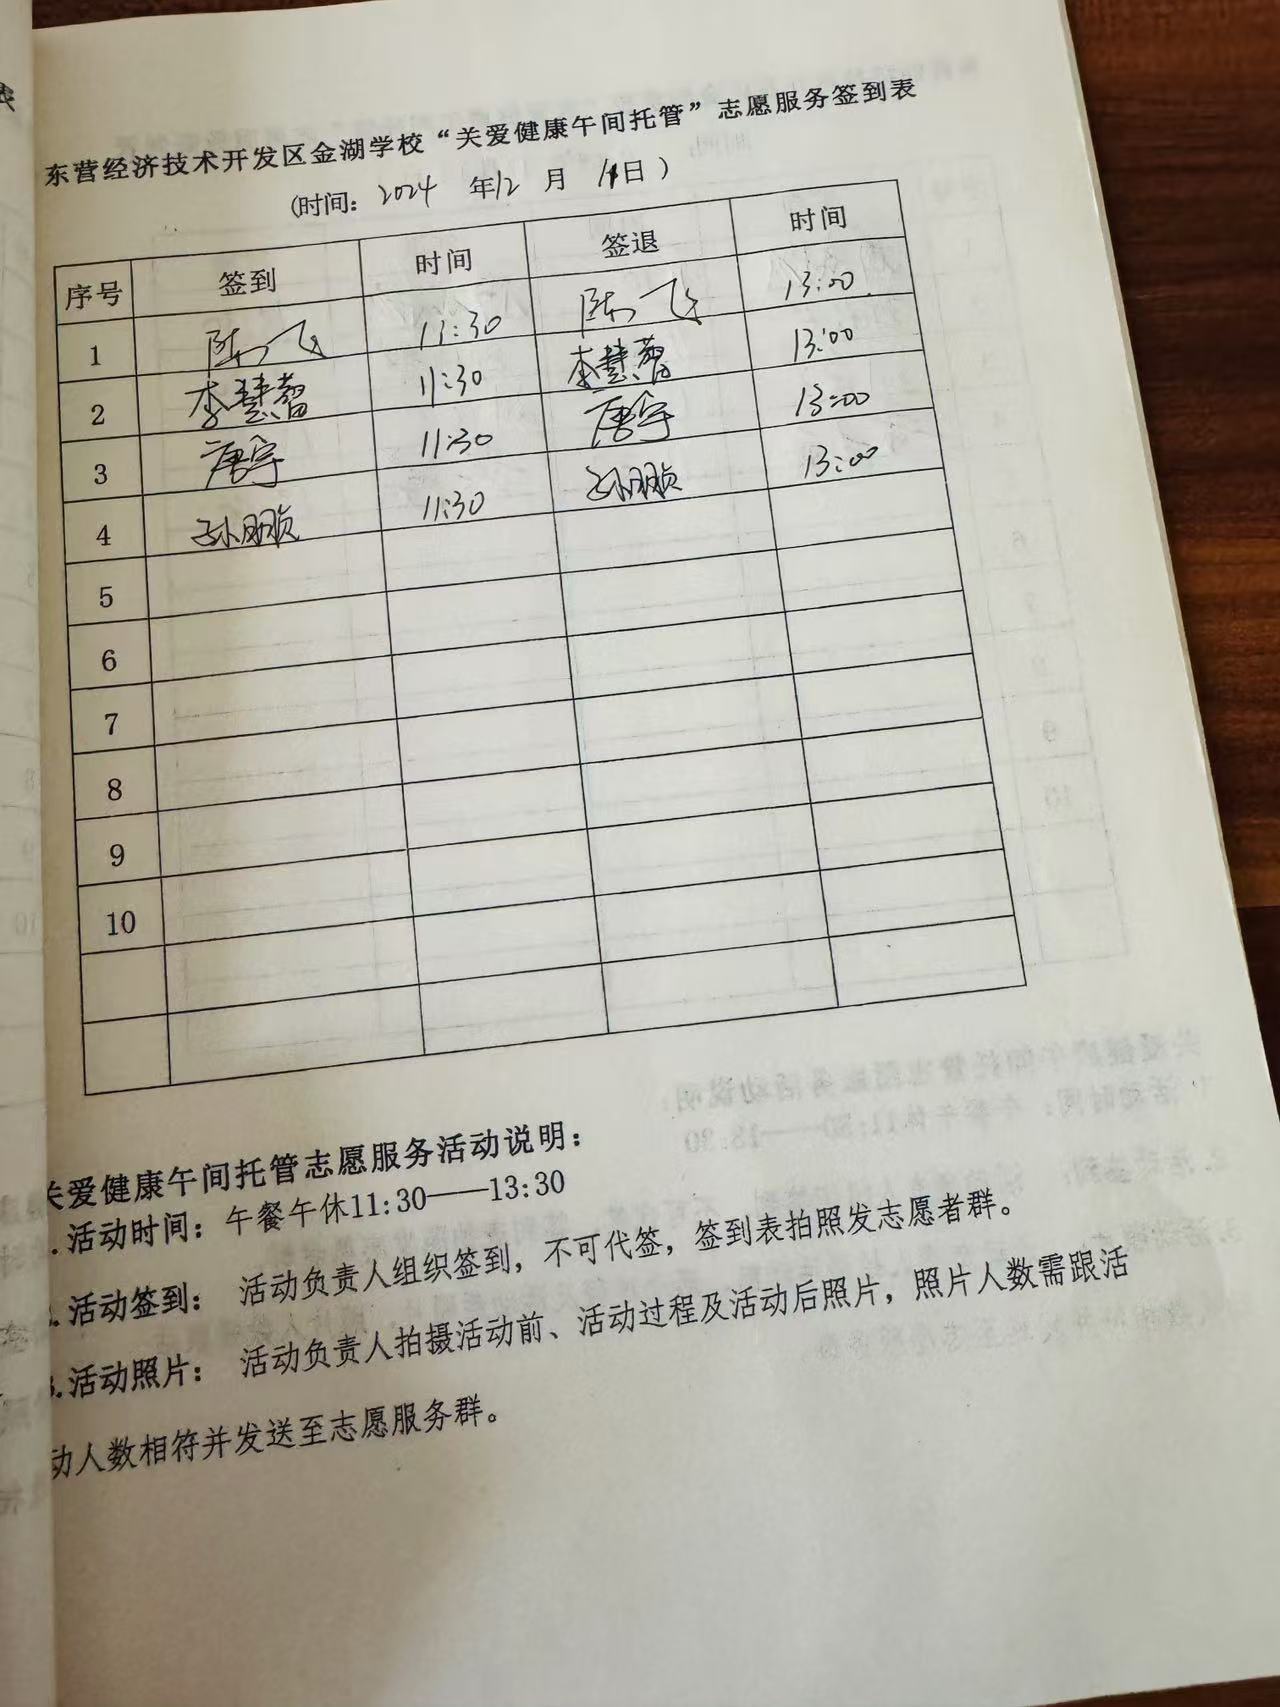 东营经济技术开发区金湖学校“关爱健康午间托管”志愿服务签到表
(时间: 2024 年12 月 11日)
序号 签到 时间 签退 时间
1 陈飞 11:30 陈飞 13:00
2 李慧 11:30 李慧 13:00
3 唐宇 11:30 唐宇 13:00
4 孙鹏 11:30 孙鹏 13:00
5
6
7
8
9
10
关爱健康午间托管志愿服务活动说明:
.活动时间: 午餐午休11:30——13:30
.活动签到: 活动负责人组织签到, 不可代签, 签到表拍照发志愿者群。
3.活动照片: 活动负责人拍摄活动前、活动过程及活动后照片, 照片人数需跟活
动人数相符并发送至志愿服务群。